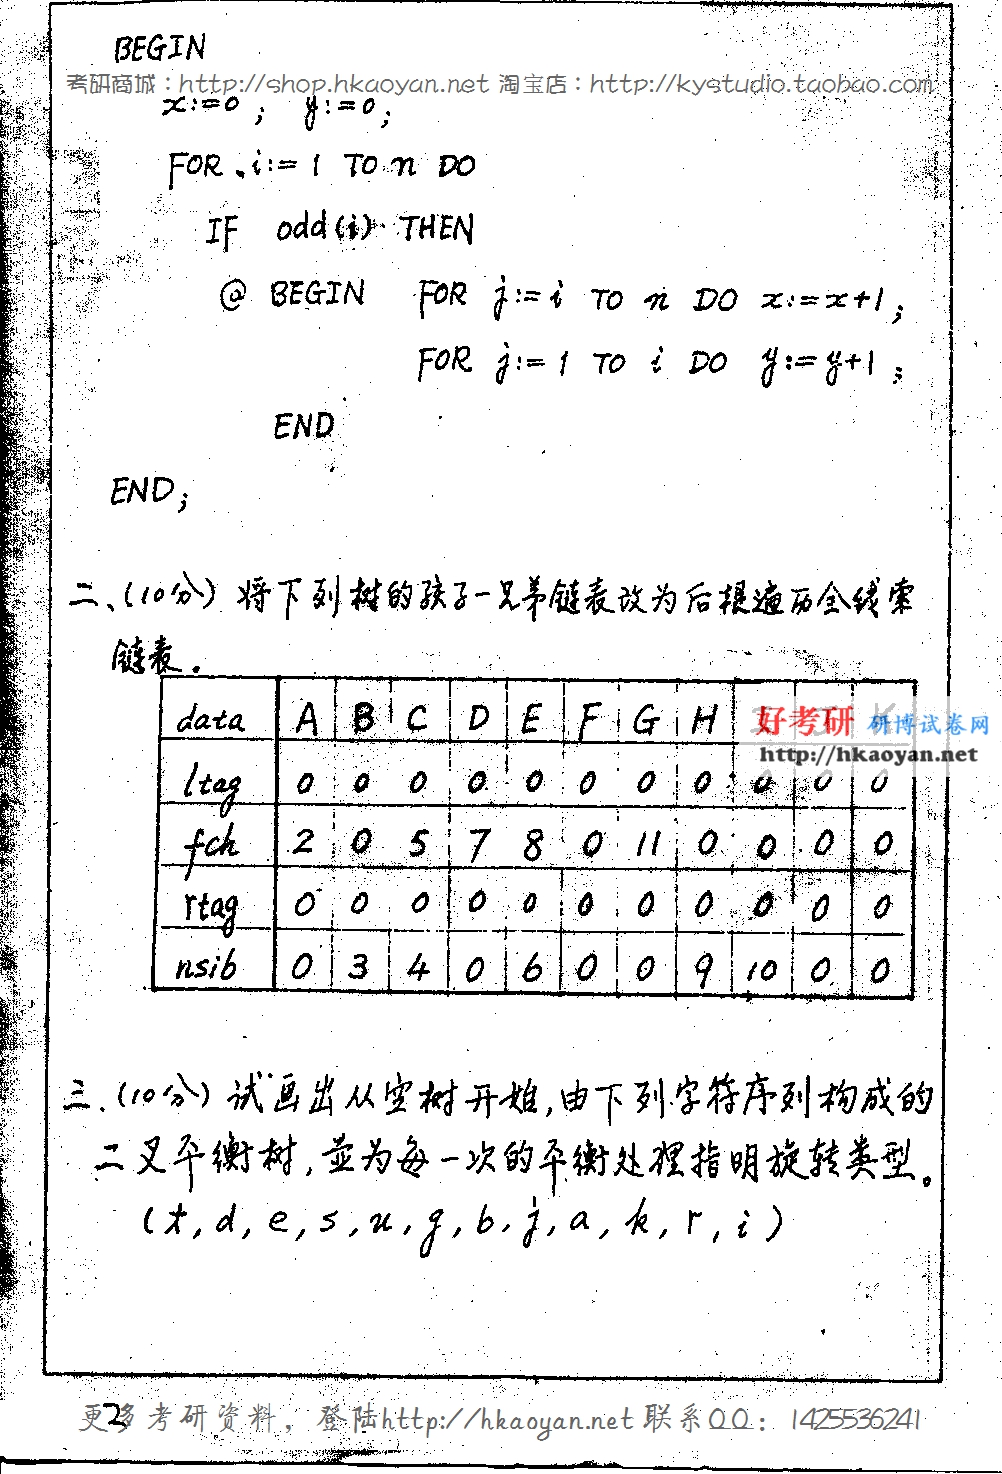 BEGIN
考研商城：http://shop.hkaoyan.net 淘宝店：http://kystudio.taobao.com
x:=0; y:=0;
FOR i:=1 TO n DO
IF odd(i) THEN
@ BEGIN FOR j:=i TO n DO x:=x+1;
FOR j:=1 TO i DO y:=y+1;
END
END;
二、(10分) 将下列树的孩子-兄弟链表改为后根遍历全线索
链表.
data A B C D E F G H
好考研 研博试卷网
http://hkaoyan.net
ltag 0 0 0 0 0 0 0 0 0 0 0
fch 2 0 5 7 8 0 11 0 0 0 0
rtag 0 0 0 0 0 0 0 0 0 0 0
nsib 0 3 4 0 6 0 0 9 10 0 0
三.(10分) 试画出从空树开始,由下列字符序列构成的
二叉平衡树,并为每一次的平衡处理指明旋转类型。
(t, d, e, s, u, g, b, j, a, k, r, i)
2
更多考研资料，登陆http://hkaoyan.net 联系QQ：1425536241